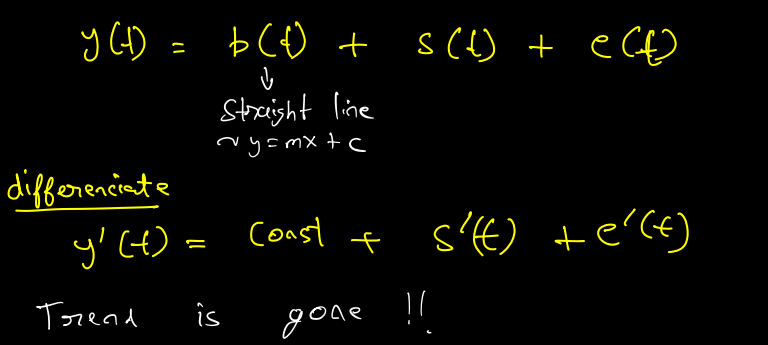 y(t) = b(t) + s(t) + e(t)
↓
Straight line
~ y = mx + c
differenciate
y'(t) = const + s'(t) + e'(t)
Trend is gone !!